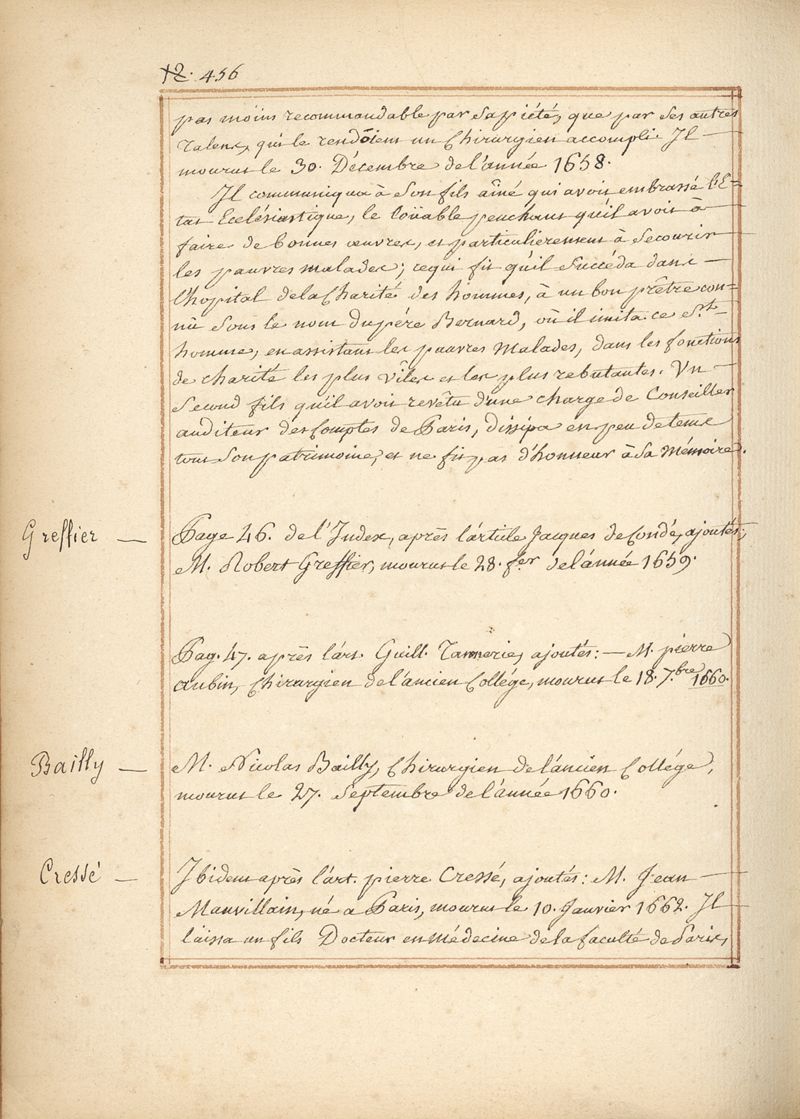 12. 456
pas moins recommandable par sa piété, que par ses autres
talens, qui le rendoient un Chirurgien accompli. Il
mourut le 30. Décembre de l'année 1658.
Il communiqua à son fils aîné qui avoit embrassé l'E-
tat Ecclésiastique, le loüable penchant qu'il avoit à
faire de bonnes œuvres, et particulierement à secourir
les pauvres malades; ce qui fit qu'il succéda dans
l'hopital de la Charité des hommes, à un bon prêtre con-
nû sous le nom du pére Bernard, où il imita ce St.
homme, en assistant les pauvres Malades, dans les fonctions
de charité les plus viles et les plus rebutantes. Un
second fils qu'il avoit revêtu d'une charge de Conseiller
auditeur des Comptes de Paris, dissipa en peu de tems
tout son patrimoine, et ne fit pas d'honneur à sa Mémoire.
Greffier — Page 46. de l'Index, après l'article Jacques de Condé, ajoutés;
M. Robert Greffier, mourut le 28. fer. de l'année 1659.
Pag. 47. après l'art. Guill. Tannerie, ajoutés: — M. pierre
Aubin, Chirurgien de l'ancien Collége, mourut le 18. 7.bre 1660.
Bailly — M. Nicolas Bailly, Chirurgien de l'ancien Collége,
mourut le 27. Septembre de l'année 1660.
Cressé — Ibidem après l'art. pierre Cressé, ajoutés: M. Jean
Mauvillain, né a Paris, mourut le 10. Janvier 1662. Il
laissa un fils Docteur en Médecine de la faculté de Paris,